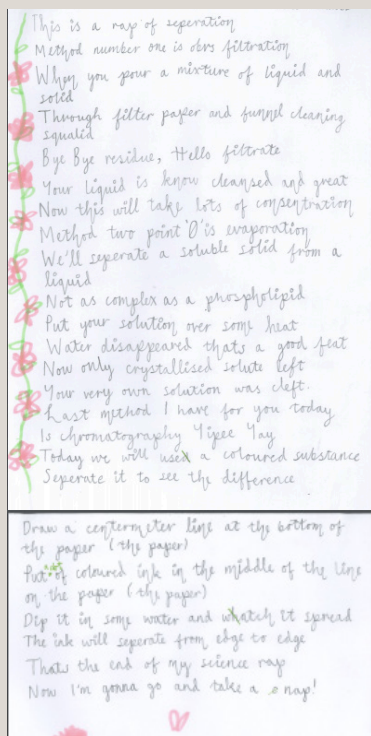 This is a rap of seperation
Method number one is obvs filtration
When you pour a mixture of liquid and
solid
Through filter paper and funnel cleaning
squalid
Bye Bye residue, Hello filtrate
Your liquid is know cleansed and great
Now this will take lots of consentration
Method two point '0' is evaporation
We'll seperate a soluble solid from a
liquid
Not as complex as a phospholipid
Put your solution over some heat
Water disappeared thats a good feat
Now only crystallised solute left
Your very own solution was cleft.
Last method I have for you today
Is chromatography Yipee Yay
Today we will use a coloured substance
Seperate it to see the difference
Draw a centermeter line at the bottom of
the paper (the paper)
Put of coloured ink in the middle of the line
on the paper (the paper)
Dip it in some water and whatch it spread
The ink will seperate from edge to edge
Thats the end of my science rap
Now I'm gonna go and take a nap!